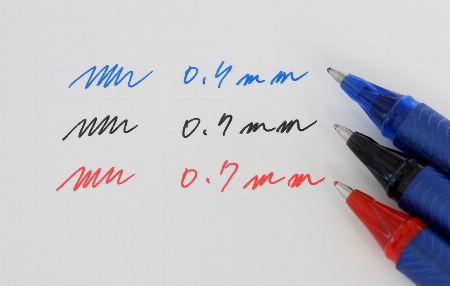 0.7 mm
0.7 mm
0.7 mm